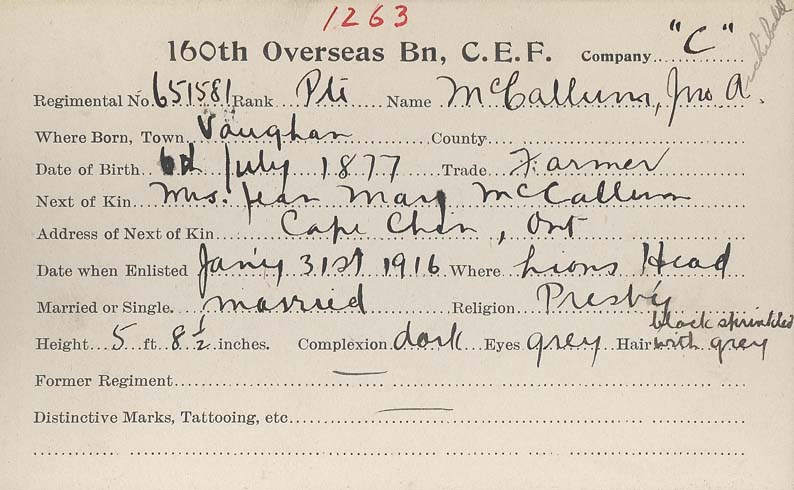 1263
160th Overseas Bn, C.E.F. Company "C"
Archibald
Regimental No. 651581 Rank Pte Name McCallum, Jno A.
Where Born, Town Vaughan County
Date of Birth July 1877 Trade Farmer
Next of Kin Mrs. Jean Mary McCallum
Address of Next of Kin Cape Chin, Ont
Date when Enlisted Jan'y 31st 1916 Where Lions Head
Married or Single. married Religion Presby
Height 5 ft. 8 1/2 inches. Complexion dark Eyes grey Hair black sprinkled with grey
Former Regiment —
Distinctive Marks, Tattooing, etc —